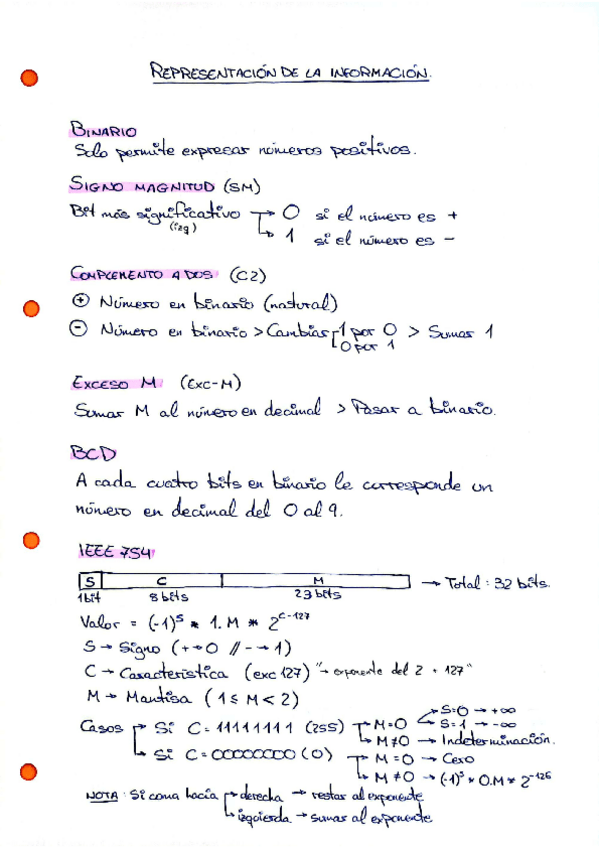 REPRESENTACIÓN DE LA INFORMACIÓN.
BINARIO
Solo permite expresar números positivos.
SIGNO MAGNITUD (SM)
Bit más significativo → 0 si el número es +
(izq) → 1 si el número es -
COMPLEMENTO A DOS (C2)
⊕ Número en binario (natural)
⊖ Número en binario > Cambiar 1 por 0 > Sumar 1
0 por 1
EXCESO M (EXC-M)
Sumar M al número en decimal > Pasar a binario.
BCD
A cada cuatro bits en binario le corresponde un
número en decimal del 0 al 9.
IEEE 754
S C M → Total: 32 bits.
1bit 8 bits 23 bits
Valor = (-1)^S * 1.M * 2^C-127
S → Signo (+→0 // -→1)
C → Característica (exc 127) "→ exponente del 2 + 127"
M → Mantisa (1 ≤ M < 2)
Casos → Si C = 11111111 (255) → M=0 → S=0 → +∞
→ S=1 → -∞
→ M≠0 → Indeterminación.
→ Si C = 00000000 (0) → M=0 → Cero
→ M≠0 → (-1)^S * 0.M * 2^-126
NOTA: Si coma hacía → derecha → restar al exponente
→ izquierda → sumar al exponente